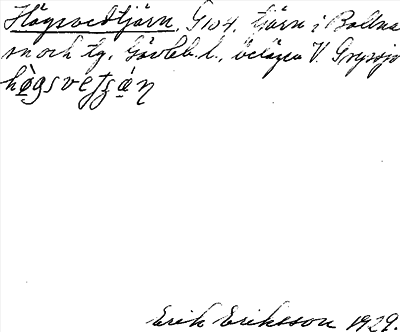 Högsvedtjärn, G104, tjärn i Bollnäs
sn och tg, Gävleb. l., belägen V. Grysjö
hògsvetʃán
Erik Eriksson 1929.